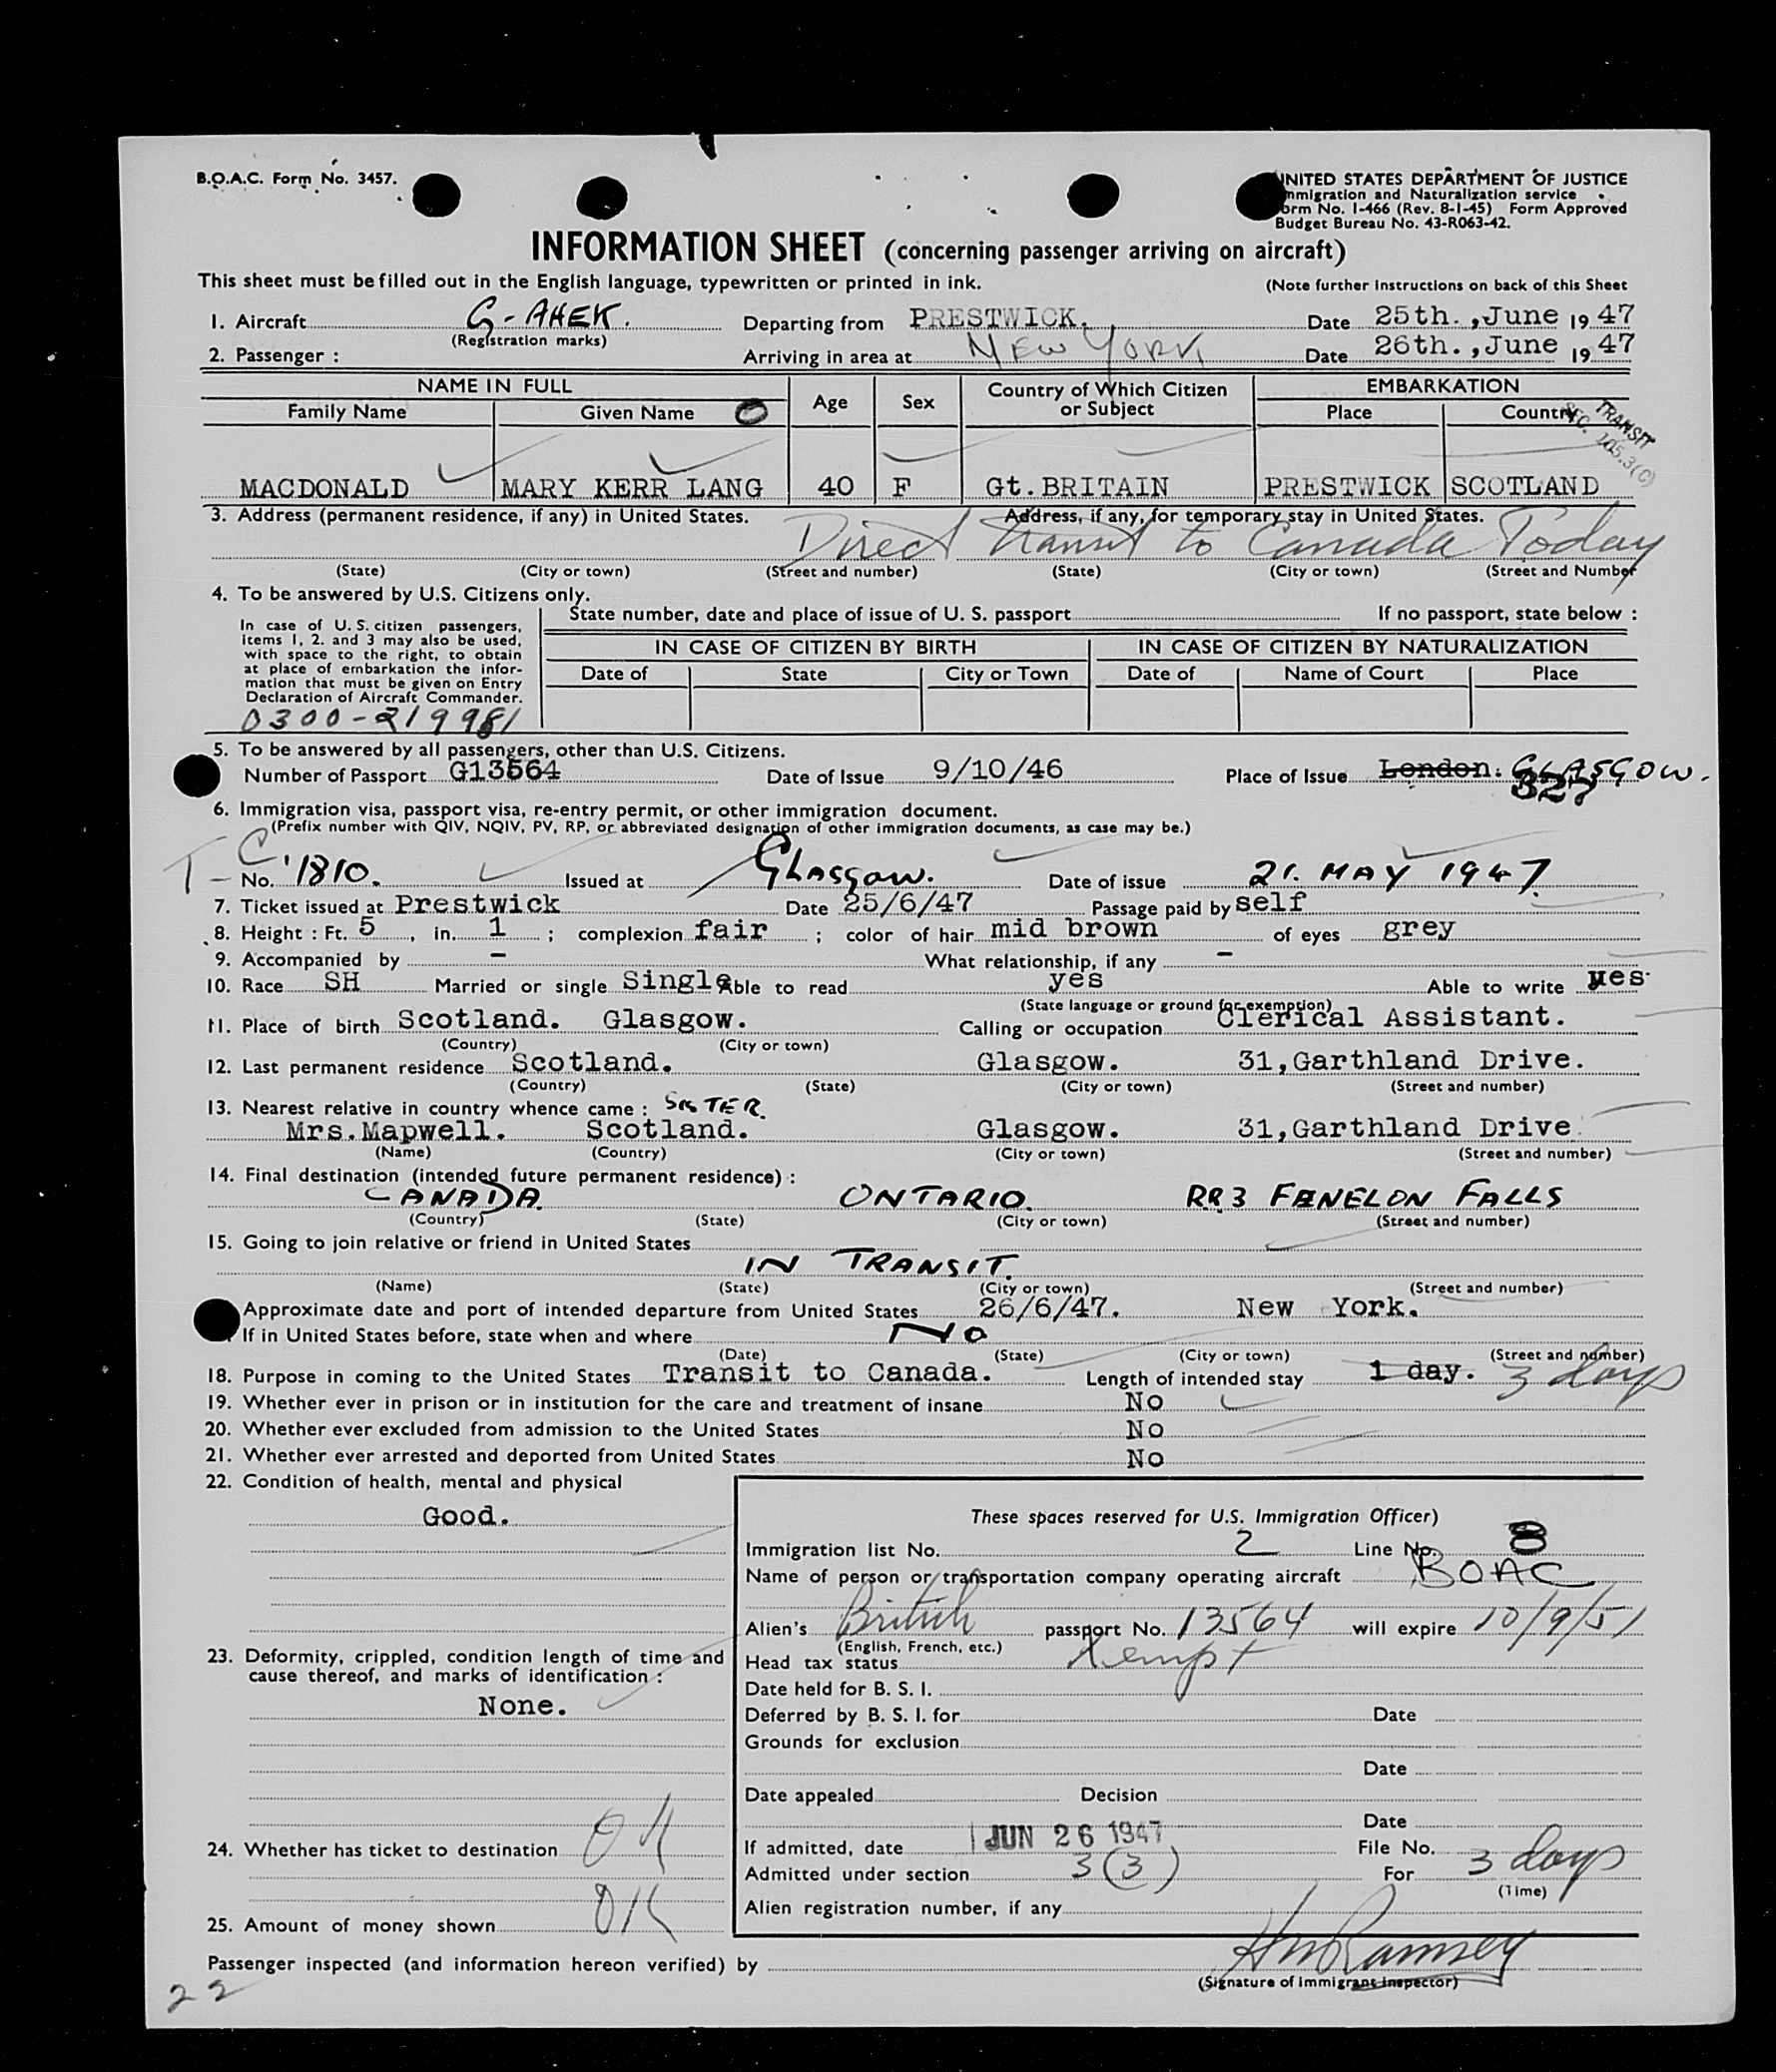 B.O.A.C. Form No. 3457.
UNITED STATES DEPARTMENT OF JUSTICE
Immigration and Naturalization service
Form No. I-466 (Rev. 8-1-45) Form Approved
Budget Bureau No. 43-R063-42.
INFORMATION SHEET (concerning passenger arriving on aircraft)
This sheet must be filled out in the English language, typewritten or printed in ink. (Note further instructions on back of this Sheet
1. Aircraft G-AHEK. Departing from PRESTWICK. Date 25th.,June 1947
(Registration marks)
2. Passenger : Arriving in area at NEW YORK Date 26th.,June 1947
NAME IN FULL Age Sex Country of Which Citizen or Subject EMBARKATION
Family Name Given Name Place Country
TRANSIT
SEC. 105.3(C)
MACDONALD MARY KERR LANG 40 F Gt.BRITAIN PRESTWICK SCOTLAND
3. Address (permanent residence, if any) in United States. Address, if any, for temporary stay in United States.
Direct transit to Canada Today
(State) (City or town) (Street and number) (State) (City or town) (Street and Number
4. To be answered by U.S. Citizens only.
State number, date and place of issue of U. S. passport If no passport, state below :
In case of U. S. citizen passengers,
items 1, 2. and 3 may also be used,
with space to the right, to obtain
at place of embarkation the infor-
mation that must be given on Entry
Declaration of Aircraft Commander.
IN CASE OF CITIZEN BY BIRTH IN CASE OF CITIZEN BY NATURALIZATION
Date of State City or Town Date of Name of Court Place
0300-219981
5. To be answered by all passengers, other than U.S. Citizens.
Number of Passport G13564 Date of Issue 9/10/46 Place of Issue London. GLASGOW.
327
6. Immigration visa, passport visa, re-entry permit, or other immigration document.
(Prefix number with QIV, NQIV, PV, RP, or abbreviated designation of other immigration documents, as case may be.)
T-C
No. 1810. Issued at GLASGOW. Date of issue 21. MAY 1947.
7. Ticket issued at Prestwick Date 25/6/47 Passage paid by self
8. Height : Ft. 5, in. 1 ; complexion fair ; color of hair mid brown of eyes grey
9. Accompanied by - What relationship, if any -
10. Race SH Married or single Single Able to read yes Able to write yes.
(State language or ground for exemption)
11. Place of birth Scotland. Glasgow. Calling or occupation Clerical Assistant.
(Country) (City or town)
12. Last permanent residence Scotland. Glasgow. 31,Garthland Drive.
(Country) (State) (City or town) (Street and number)
13. Nearest relative in country whence came : SISTER.
Mrs.Mapwell. Scotland. Glasgow. 31,Garthland Drive.
(Name) (Country) (City or town) (Street and number)
14. Final destination (intended future permanent residence) :
CANADA. ONTARIO. RR3 FENELON FALLS
(Country) (State) (City or town) (Street and number)
15. Going to join relative or friend in United States
IN TRANSIT.
(Name) (State) (City or town) (Street and number)
Approximate date and port of intended departure from United States 26/6/47. New York.
If in United States before, state when and where NO
(Date) (State) (City or town) (Street and number)
18. Purpose in coming to the United States Transit to Canada. Length of intended stay 1 day. 3 days
19. Whether ever in prison or in institution for the care and treatment of insane No
20. Whether ever excluded from admission to the United States No
21. Whether ever arrested and deported from United States No
22. Condition of health, mental and physical
Good.
23. Deformity, crippled, condition length of time and
cause thereof, and marks of identification :
None.
24. Whether has ticket to destination OK
25. Amount of money shown OK
These spaces reserved for U.S. Immigration Officer)
Immigration list No. 2 Line No. 8
Name of person or transportation company operating aircraft BOAC
Alien's British passport No. 13564 will expire 10/9/51
(English, French, etc.)
Head tax status Xempt
Date held for B. S. I.
Deferred by B. S. I. for Date
Grounds for exclusion
Date
Date appealed Decision
Date
If admitted, date JUN 26 1947 File No.
Admitted under section 3(3) For 3 days
(Time)
Alien registration number, if any
Passenger inspected (and information hereon verified) by HW Ramsey
(Signature of Immigrant Inspector)
22